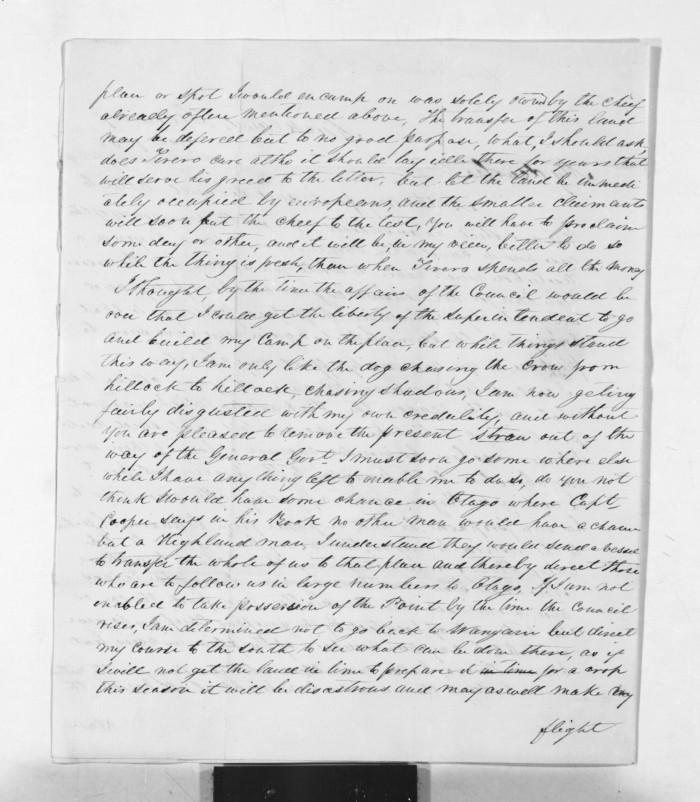 place or spot I would encamp on was solely owned by the chief
already often mentioned above, The transfer of this land
may be defered but to no good purpose, what, I should ask,
does Tirero care altho it should lay idle there for years that
will serve his greed to the letter, but let the land be immedi
ately occupied by europeans, and the smaller claimants
will soon put the cheef to the test, You will have to proclaim
some day or other, and it will be, in my view, better to do so
while the thing is fresh, than when Tirero spends all the money
I thought, by the time the affairs of the Council would be
over that I could get the liberty of the Superintendent to go
and build my Camp on the place, but while things stand
this way, I am only like the dog chasing the Crow from
hillock to hillock, chasing shadows, I am now geting
fairly disgusted with my own credulity, and without
you are pleased to remove the present straw out of the
way of the General Govt. I must soon go some where else
while I have any thing left to enable me to do so, do you not
think I would have some chance in Otago where Capt.
Cooper says in his Book no other man would have a chance
but a Highland man, I understand they would send a vessel
to transfer the whole of us to that place and thereby direct those
who are to follow us in large numbers to Otago, If I am not
enabled to take possession of the Point by the time the Council
rises, I am determined not to go back to Wangarei but direct
my course to the south to see what can be done there, as if
I will not get the land in time to prepare it in time for a crop
this season it will be disastrous and may as well make my
flight